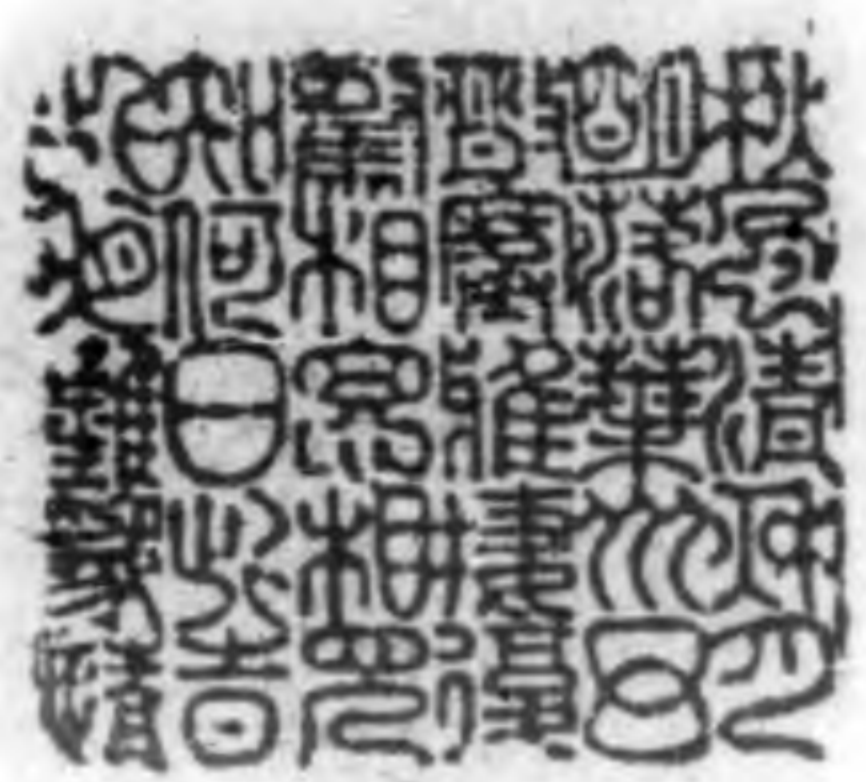 秋風清秋月
明落葉聚還
散寒鴉棲復
驚相思相見
知何日此時
此夜難為情